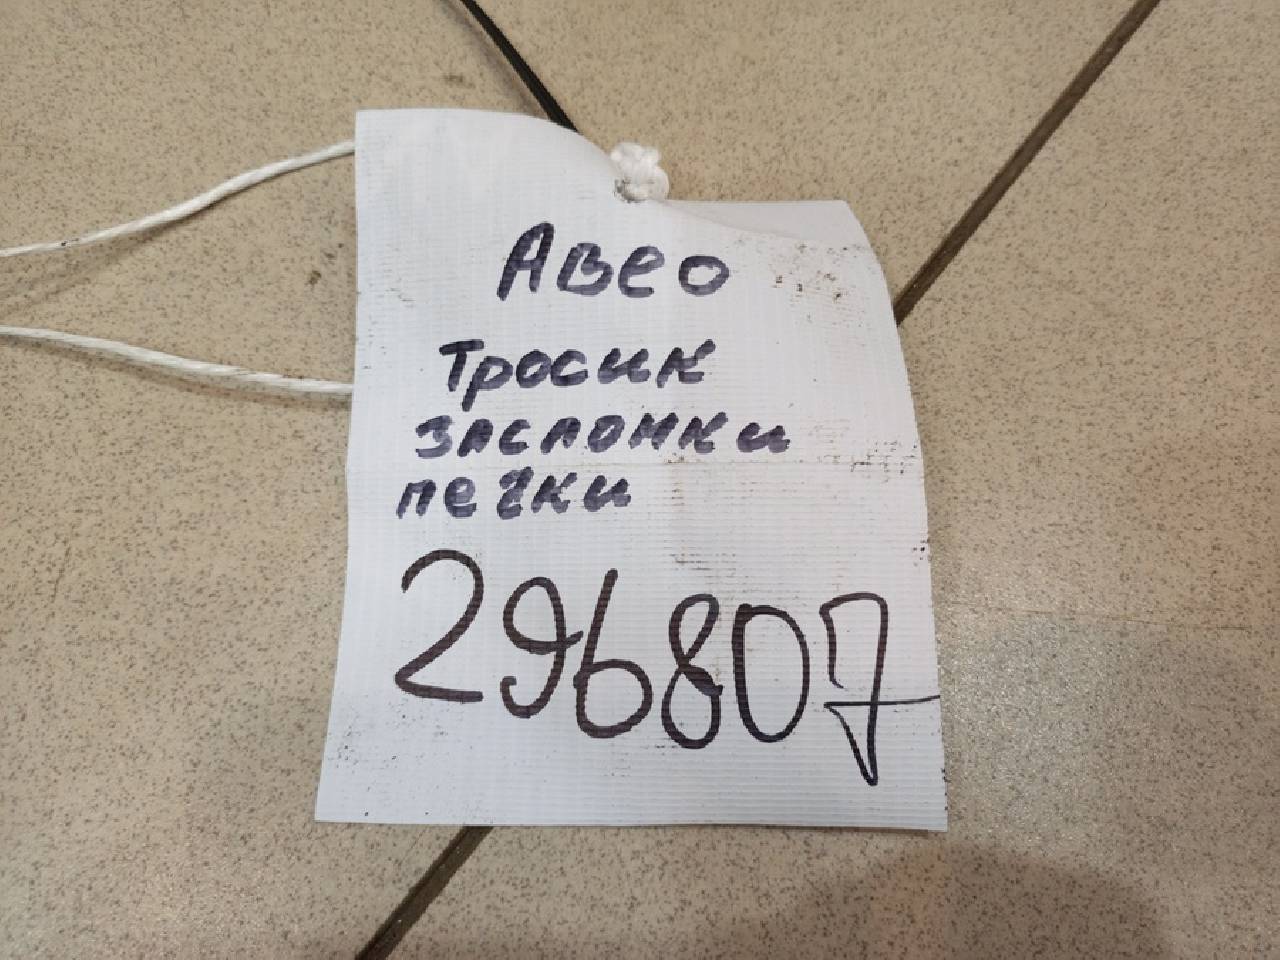 Авео
Тросик
заслонки
печки
296807